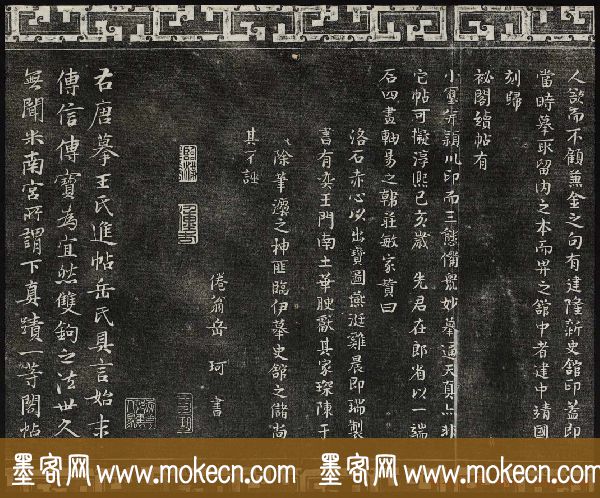 人欲而不顧兼金之句有建隆新史館印蓋即
當時摹取留內之本而畀之館中者建中靖國
刻歸
秘閣續帖有
小璽旁穎川印而三態備覺妙摹逼天真亡非
它帖可擬淳熙己亥歲 先君在郎省以一端
石四畫軸易之韓莊敏家贊曰
洛石赤心以出寶圖燕涎雞晨即瑞製
書有奕王門南土華腴獻其家琛陳于
除華澀之神匪臨伊摹史館之儲尚
其不誣
倦翁岳珂書
右唐摹王氏進帖岳氏具言始末
傳信傳寶為宜然雙鉤之法世久
無聞米南宮所謂下真蹟一等閣帖
墨客网 www.mokecn.com 墨客网 www.mokecn.com